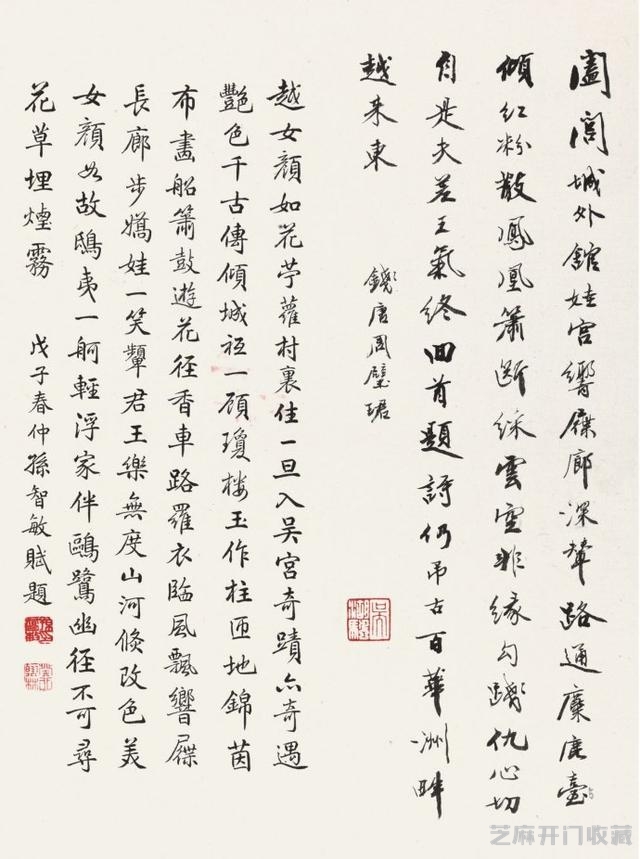 闔閭城外館娃宮響屧廊深輦路通麋鹿臺
傾紅粉散鳳凰簫斷綵雲空非緣勾踐仇心切
自是夫差王氣終回首題詩仍吊古百華洲畔
越来東
錢唐周璧珺
越女顏如花苧蘿村裏住一旦入吴宮奇蹟亦奇遇
艷色千古傳傾城祇一顧瓊樓玉作柱匝地錦茵
布畫船簫鼓遊花径香車路羅衣臨風飄響屧
長廊步嬌娃一笑顰君王樂無度山河倏改色美
女顏如故鴟夷一舸輕浮家伴鷗鷺幽径不可尋
花草埋煙霧
戊子春仲孫智敏賦題
芝麻开门收藏